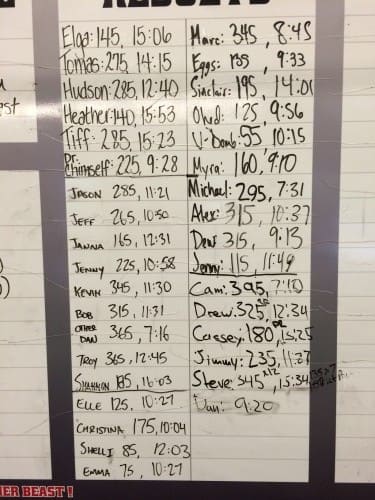 RESULTS
Elga: 145, 15:06
Tomas: 275, 14:15
Hudson: 285, 12:40
Heather: 140, 15:53
Tiff: 285, 15:23
Dr. Chimself: 225, 9:28
JASON 285, 11:21
JEFF 265, 10:50
JANNA 165, 12:31
JENNY 225, 10:58
KEVIN 345, 11:30
BOB 315, 11:31
OTHER DAN 365, 7:16
TROY 365, 12:45
SHANNON 185, 16:03
ELLE 125, 10:27
CHRISTINA 175, 10:04
SHELLI 85, 12:03
EMMA 75, 10:27
Marc: 345, 8:45
Eggs: 135, 9:33
Sinclair: 195, 14:01
125, 9:56
V-Domb: 55, 10:15
Myra: 160, 9:10
Michael: 295, 7:31
Alex: 315, 10:37
Dew 315, 9:13
Jenny: 115, 11:49
Cam: 395, 7:10
Drew: 325, 12:34
Cassey: 180, 15:25
Jimmy: 235, 11:37
Steve: 345 x12, 15:34
Dan: 9:20
ER BEAST!